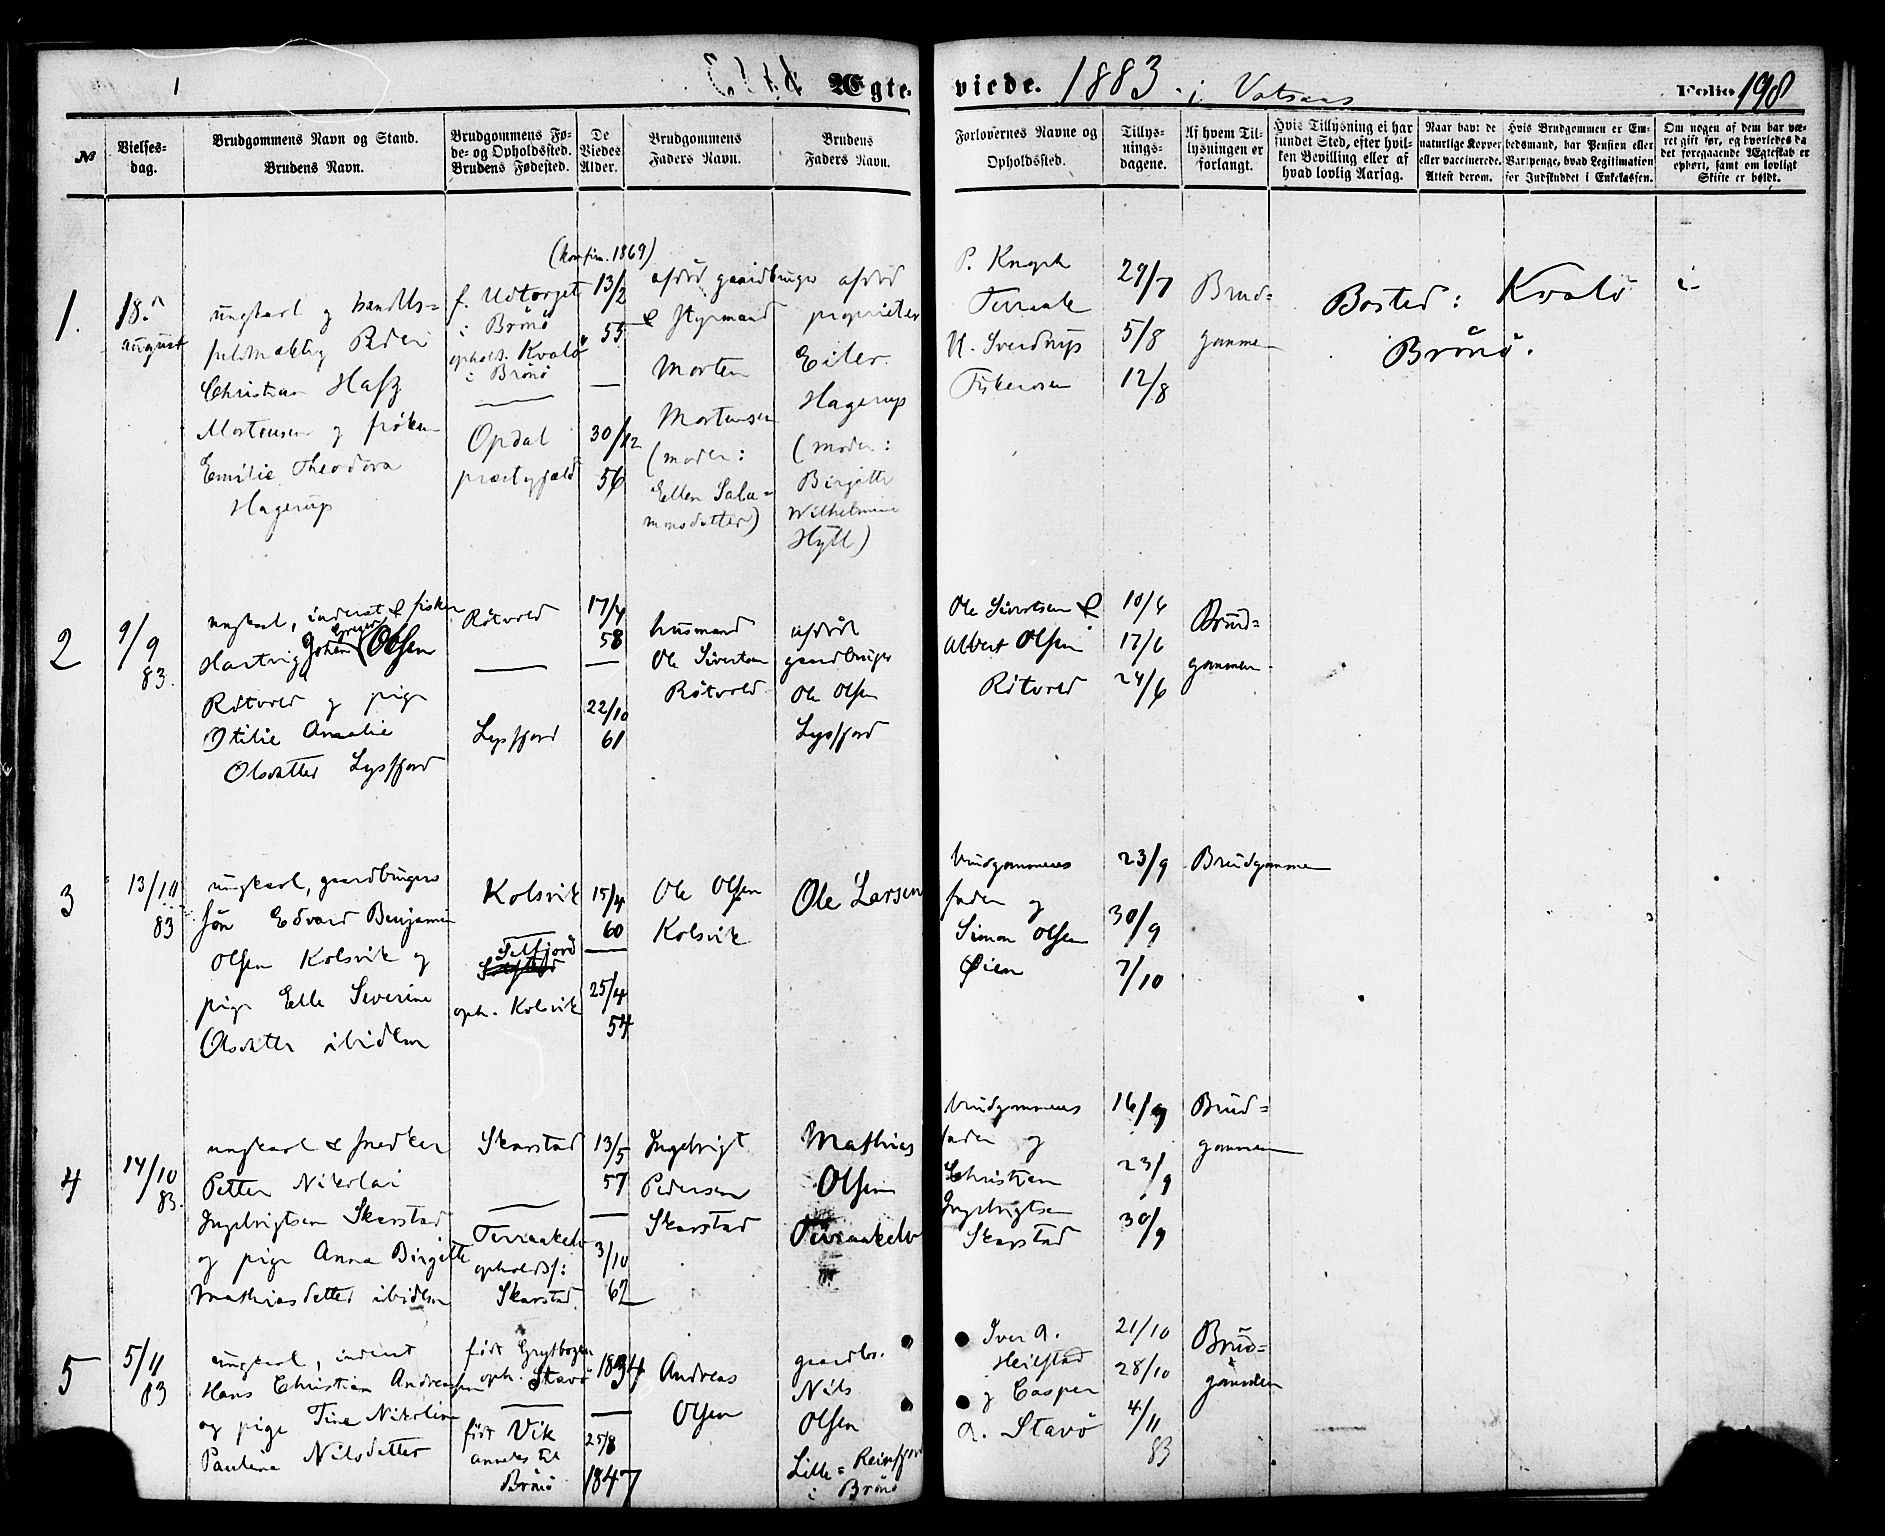 Ægte-
viede. 1883. i Vatsaas
Folio 198
№
Vielses-
dag.
Brudgommens Navn og Stand.
Brudens Navn.
Brudgommens Fø-
de- og Opholdssted.
Brudens Fødested.
De
Viedes
Alder.
Brudgommens
Faders Navn.
Brudens
Faders Navn.
Forlovernes Navne og
Opholdssted.
Tillys-
nings-
dagene.
Af hvem Til-
lysningen er
forlangt.
Hvis Tillysning ei har
fundet Sted, efter hvil-
ken Bevilling eller af
hvad lovlig Aarsag.
Naar havt de
naturlige Kopper
eller vaccinerede.
Attest derom.
Hvis Brudgommen er Em-
bedsmand, har Pension eller
Vartpenge, hvad Legitimation
for Indskuddet i Enkekassen.
Om nogen af dem har væ-
ret gift før, og hvorledes da
det foregaaende Ægteskab er
ophørt, samt om lovligt
Skifte er holdt.
1.
18.
august
ungkarl og handels-
fuldmægtig Peder
Christian
Mortensen og frøken
Emilie Theodora
Hagerup
f. Udtorget
i Brønø
opholds. Kvalø
i Brønø
Opdal
præstegjæld
(konfirm. 1869)
13/2
55
30/12
56
afdød gaardbruger
& styrmand
Morten
Mortensen
(moder:
Ellen Sala-
monsdatter)
afdød
proprietær
Eiler
Hagerup
(moder:
Birgitte
Wilhelmine
Hyll)
P.
Terraak
U. Sverdrup
Fiskerosen
29/7
5/8
12/8
Brud-
gommen
Bosted: Kvalø i
Brønø.
2
9/9
83.
ungkarl, inderst & fisker
Hartvig Johan Olsen
Røtvold og pige
Otilie Amalie
Olsdatter Lysfjord
Røtvold
Lysfjord
17/4
58
22/10
61
husmand
Ole Sivertsen
Røtvold
afdød
gaardbruger
Ole Olsen
Lysfjord
Ole Sivertsen &
Albert Olsen
Røtvold
10/6
17/6
24/6
Brud-
gommen
3
13/10
83
ungkarl, gaardbrugers
søn Edvard Benjamin
Olsen Kolsvik og
pige Elle Severine
Olsdatter ibidem
Kolsvik
oph. Kolsvik
15/4
60
25/4
54
Ole Olsen
Kolsvik
Ole Larsen
brudgommens
fader og
Simon Olsen
Øien
23/9
30/9
7/10
Brudgommen
4
14/10
83.
ungkarl & snedker
Petter Nikolai
Ingebrigtsen Skarstad
og pige Anna Birgitte
Mathiasdatter ibidem
Skarstad
Terraakelv
opholdss:
Skarstad.
13/5
57
3/10
62
Ingebrigt
Pedersen
Skarstad
Mathias
Olsen
Terraakelv
brudgommens
fader og
Christian
Ingebrigtsen
Skarstad
16/9
23/9
30/9
Brud-
gommen
5
5/11
83
ungkarl, inderst
Hans Christian Andreassen
og pige Tine Nikoline
Pauline Nilsdatter
født
oph. Stavø
født Vik
annex til
Brønø
1834
25/8
1847
Andreas
Olsen
gaardbr.
Nils
Olsen
Lille-Reinfjord
i Brønø
Iver A.
Heilstad
og Casper
A. Stavø
21/10
28/10
4/11
83
Brud-
gommen